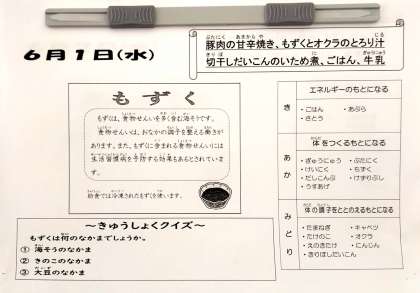 6月1日(水)
豚肉の甘辛焼き、もずくとオクラのとろり汁
切干しだいこんのいため煮、ごはん、牛乳
もずく
もずくは、食物せんいを多く含む海そうです。
食物せんいは、おなかの調子を整える働きが
あります。また、もずくに含まれる食物せんいには
生活習慣病を予防する効果もあるとされていま
す。
給食では冷凍されたもずくを使います。
~きゅうしょくクイズ~
もずくは何のなかまでしょうか。
① 海そうのなかま
② きのこのなかま
③ 大豆のなかま
エネルギーのもとになる
き
・ごはん ・あぶら
・さとう
体をつくるもとになる
あか
・ぎゅうにゅう ・ぶたにく
・けいにく ・もずく
・だしこんぶ ・けずりぶし
・うすあげ
体の調子をととのえるもとになる
みどり
・たまねぎ ・キャベツ
・たけのこ ・オクラ
・えのきたけ ・にんじん
・きりぼしだいこん